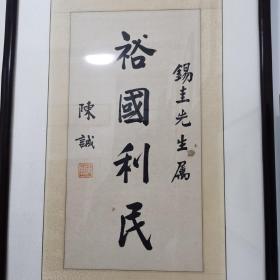 錫圭先生属
裕國利民
陳誠